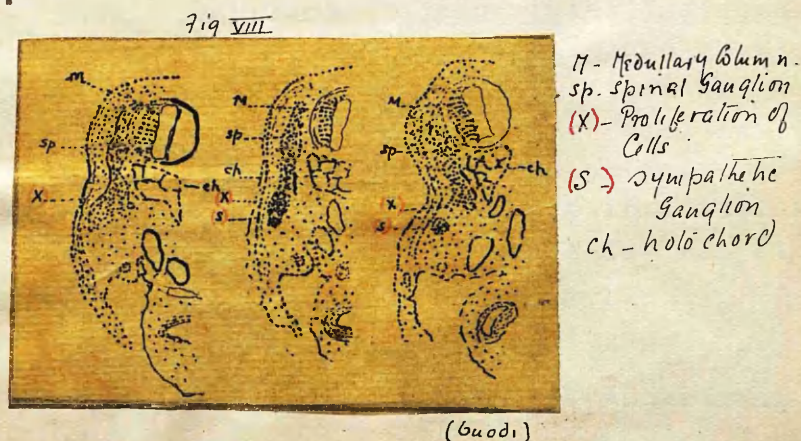 Fig VIII
M
sp
X
ch
M
sp
ch
(X)
(S)
M
sp
(X)
(S)
ch
M - Medullary Column.
sp. spinal Ganglion
(X) - Proliferation of
Cells
(S -) sympathetic
Ganglion
ch - holochord
(Guodi)